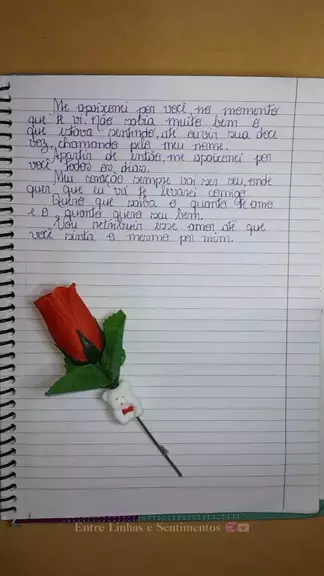 Me apaixonei por você, no momento
que te vi. Não sabia muito bem o
que estava sentindo, até ouvir sua doce
voz, chamando pelo meu nome.
Apartir de então, me apaixonei por
você todos os dias.
Meu coração sempre vai ser seu, onde
quer que eu vá te levarei comigo.
Quero que saiba o quanto te amo
e o quanto quero seu bem.
Vou retribuir esse amor até que
você sinta o mesmo por mim.
Entre Linhas e Sentimentos